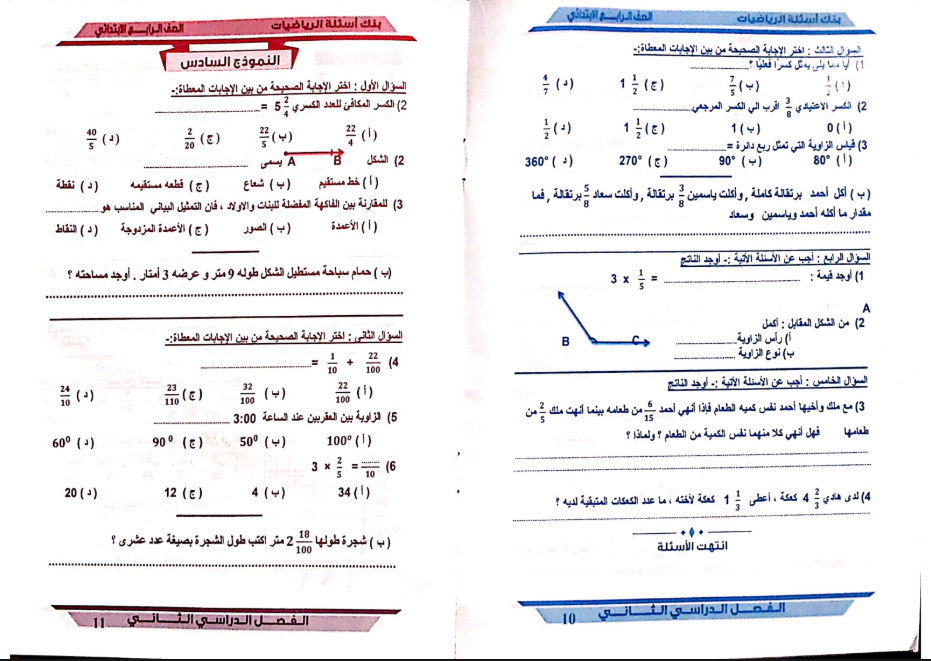 بنك أسئلة الرياضيات الصف الرابع الابتدائي
السؤال الثالث : اختر الإجابة الصحيحة من بين الإجابات المعطاة:-
1) أيا مما يلى يمثل كسرًا فعليًا ؟............
(أ) 1/2 (ب) 7/5 (ج) 1 1/2 (د) 4/7
2) الكسر الاعتيادي 3/8 اقرب الي الكسر المرجعي............
(أ) 0 (ب) 1 (ج) 1 1/2 (د) 1/2
3) قياس الزاوية التي تمثل ربع دائرة =............
(أ) 80° (ب) 90° (ج) 270° (د) 360°
(ب) أكل أحمد برتقالة كاملة , وأكلت ياسمين 3/8 برتقالة , وأكلت سعاد 5/8 برتقالة , فما
مقدار ما أكله أحمد وياسمين وسعاد
السؤال الرابع : أجب عن الأسئلة الآتية :- أوجد الناتج
1) أوجد قيمة : ............ = 3 x 1/5
A
2) من الشكل المقابل : أكمل
B C
أ) رأس الزاوية............
ب) نوع الزاوية ............
السؤال الخامس : أجب عن الأسئلة الآتية :- أوجد الناتج
3) مع ملك وأخيها أحمد نفس كميه الطعام فإذا أنهي أحمد 6/15 من طعامه بينما أنهت ملك 2/5 من
طعامها فهل أنهي كلا منهما نفس الكمية من الطعام ؟ ولماذا ؟
4) لدى هادي 4 2/3 كعكة ، أعطى 1 1/3 كعكة لأخته ، ما عدد الكعكات المتبقية لديه ؟
انتهت الأسئلة
الفصل الدراسي الثاني 10
بنك أسئلة الرياضيات الصف الرابع الابتدائي
النموذج السادس
السؤال الأول : اختر الإجابة الصحيحة من بين الإجابات المعطاة:-
2) الكسر المكافئ للعدد الكسري 5 2/4 = ............
(أ) 22/4 (ب) 22/5 (ج) 2/20 (د) 40/5
2) الشكل A B يسمى ............
(أ) خط مستقيم (ب) شعاع (ج) قطعه مستقيمه (د) نقطة
3) للمقارنة بين الفاكهة المفضلة للبنات والاولاد ، فان التمثيل البياني المناسب هو............
(أ) الأعمدة (ب) الصور (ج) الأعمدة المزدوجة (د) النقاط
(ب) حمام سباحة مستطيل الشكل طوله 9 متر و عرضه 3 أمتار . أوجد مساحته ؟
السؤال الثاني : اختر الإجابة الصحيحة من بين الإجابات المعطاة:-
4) ............ = 1/10 + 22/100
(أ) 22/100 (ب) 32/100 (ج) 23/110 (د) 24/10
5) الزاوية بين العقربين عند الساعة 3:00 ............
(أ) 100° (ب) 50° (ج) 90° (د) 60°
6) 3 × 2/5 = ....../10
(أ) 34 (ب) 4 (ج) 12 (د) 20
(ب) شجرة طولها 2 18/100 متر اكتب طول الشجرة بصيغة عدد عشرى ؟
الفصل الدراسي الثاني 11